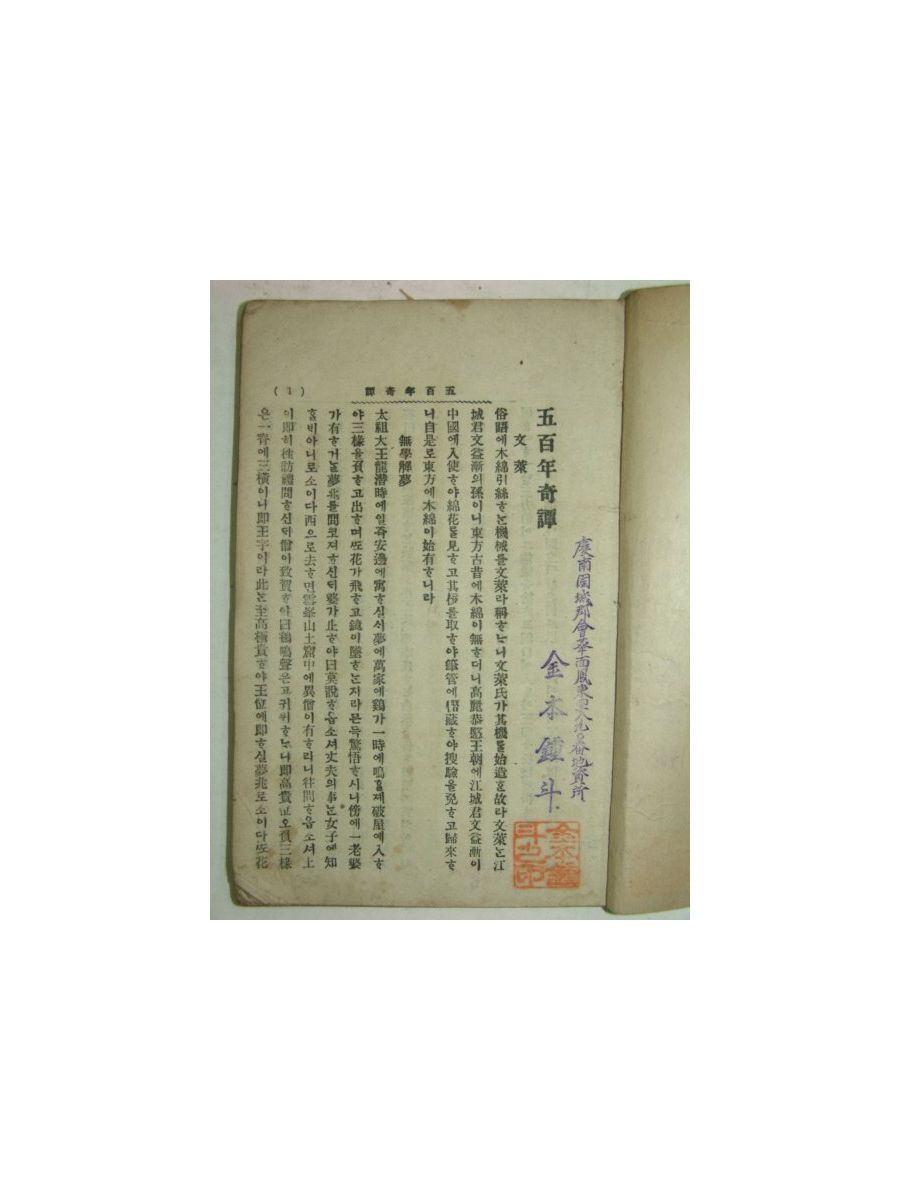 五百年奇譚
(1)
五百年奇譚
文萊
俗語에木綿引絲ᄒᆞᄂᆞᆫ機械를文萊라稱ᄒᆞᄂᆞ니文萊氏가其機를始造ᄒᆞᆫ故라文萊ᄂᆞᆫ江
城君文益漸의孫이니東方古昔에木綿이無ᄒᆞ더니高麗恭愍王朝에江城君文益漸이
中國에入使ᄒᆞ야綿花를見ᄒᆞ고其種를取ᄒᆞ야筆管에潛藏ᄒᆞ야搜驗을免ᄒᆞ고歸來ᄒᆞ
니自是로東方에木綿이始有ᄒᆞ니라
無學解夢
太祖大王龍潛時에일즉安邊에寓ᄒᆞ실ᄉᆡ夢에萬家에鷄가一時에鳴ᄒᆞᆯ졔破屋에入ᄒᆞ
야三椽을負ᄒᆞ고出ᄒᆞ며ᄯᅩ花가飛ᄒᆞ고鏡이墜ᄒᆞᄂᆞᆫ지라문득驚悟ᄒᆞ시니傍에一老婆
가有ᄒᆞ거ᄂᆞᆯ夢兆를問코져ᄒᆞ신ᄃᆡ婆가止ᄒᆞ야曰莫說ᄒᆞ옵소셔丈夫의事ᄂᆞᆫ女子에知
ᄒᆞᆯᄇᆡ아니로소이다西으로去ᄒᆞ면雪峯山土窟中에異僧이有ᄒᆞ라니往問ᄒᆞ옵소셔上
이即히往訪禮問ᄒᆞ신ᄃᆡ僧이致賀ᄒᆞ야曰鷄鳴聲은고귀위ᄒᆞᄂᆞ니即高貴位오負三椽
은一脊에三橫이니即王字이라此ᄂᆞᆫ至高極貴ᄒᆞ야王位에即ᄒᆞ실夢兆로소이다ᄯᅩ花
金本鍾斗